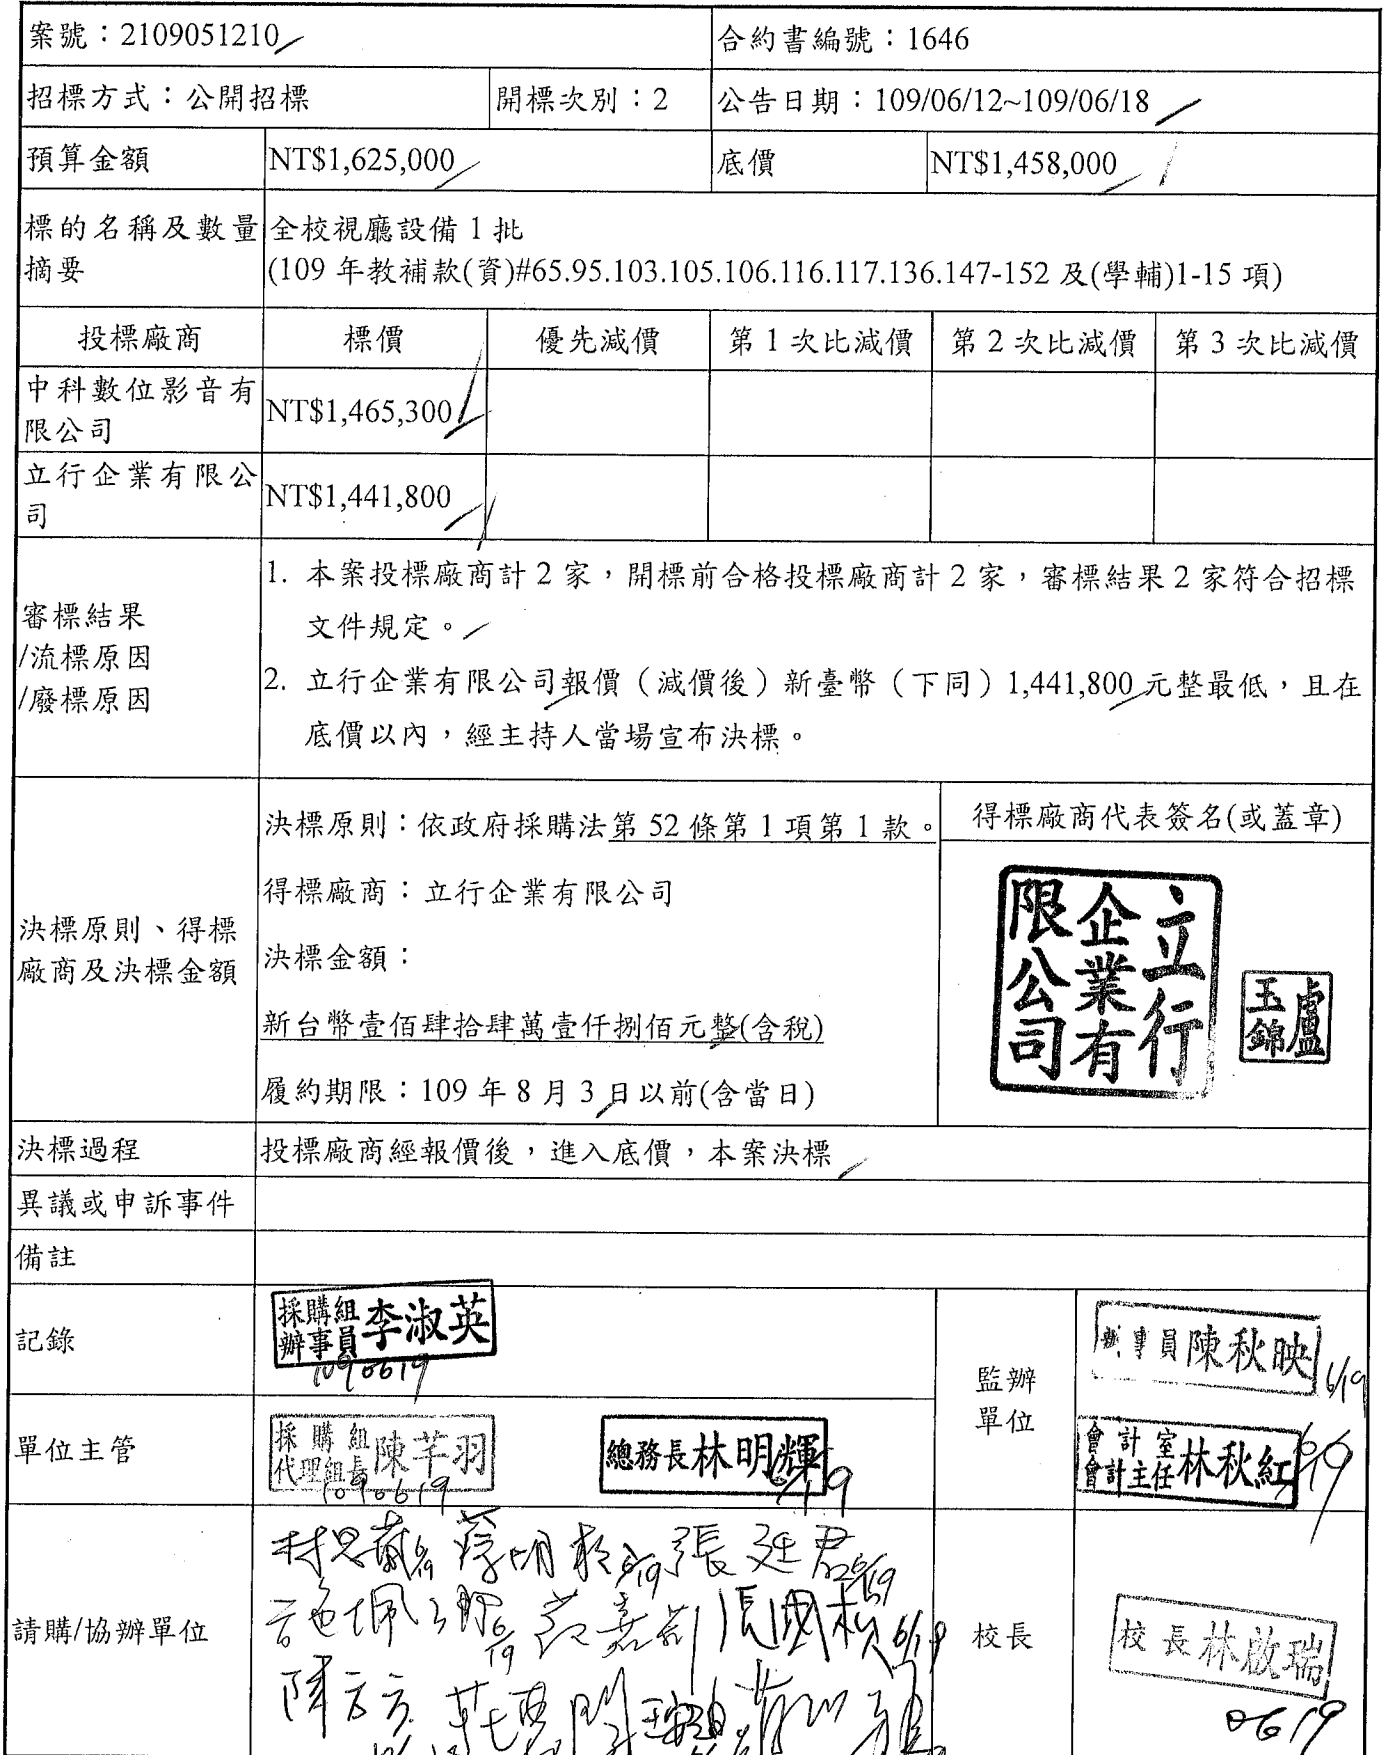 案號：2109051210
合約書編號：1646
招標方式：公開招標
開標次別：2
公告日期：109/06/12~109/06/18
預算金額
NT$1,625,000
底價
NT$1,458,000
標的名稱及數量
摘要
全校視廳設備 1 批
(109 年教補款(資)#65.95.103.105.106.116.117.136.147-152 及(學輔)1-15 項)
投標廠商
標價
優先減價
第 1 次比減價
第 2 次比減價
第 3 次比減價
中科數位影音有
限公司
NT$1,465,300
立行企業有限公
司
NT$1,441,800
審標結果
/流標原因
/廢標原因
1. 本案投標廠商計 2 家，開標前合格投標廠商計 2 家，審標結果 2 家符合招標
文件規定。
2. 立行企業有限公司報價（減價後）新臺幣（下同）1,441,800 元整最低，且在
底價以內，經主持人當場宣布決標。
決標原則、得標
廠商及決標金額
決標原則：依政府採購法第 52 條第 1 項第 1 款。
得標廠商：立行企業有限公司
決標金額：
新台幣壹佰肆拾肆萬壹仟捌佰元整(含稅)
履約期限：109 年 8 月 3 日以前(含當日)
得標廠商代表簽名(或蓋章)
立行
企業有
限公司
盧
玉錦
決標過程
投標廠商經報價後，進入底價，本案決標
異議或申訴事件
備註
記錄
採購組
辦事員 李淑英
1090619
監辦
單位
辦事員 陳秋映
6/19
單位主管
採購組
代理組長 陳芊羽
1090619
總務長 林明輝
6/19
會計室
會計主任 林秋紅
6/19
請購/協辦單位
張廷君
6/19
6/19
校長
校長 林啟瑞
0619